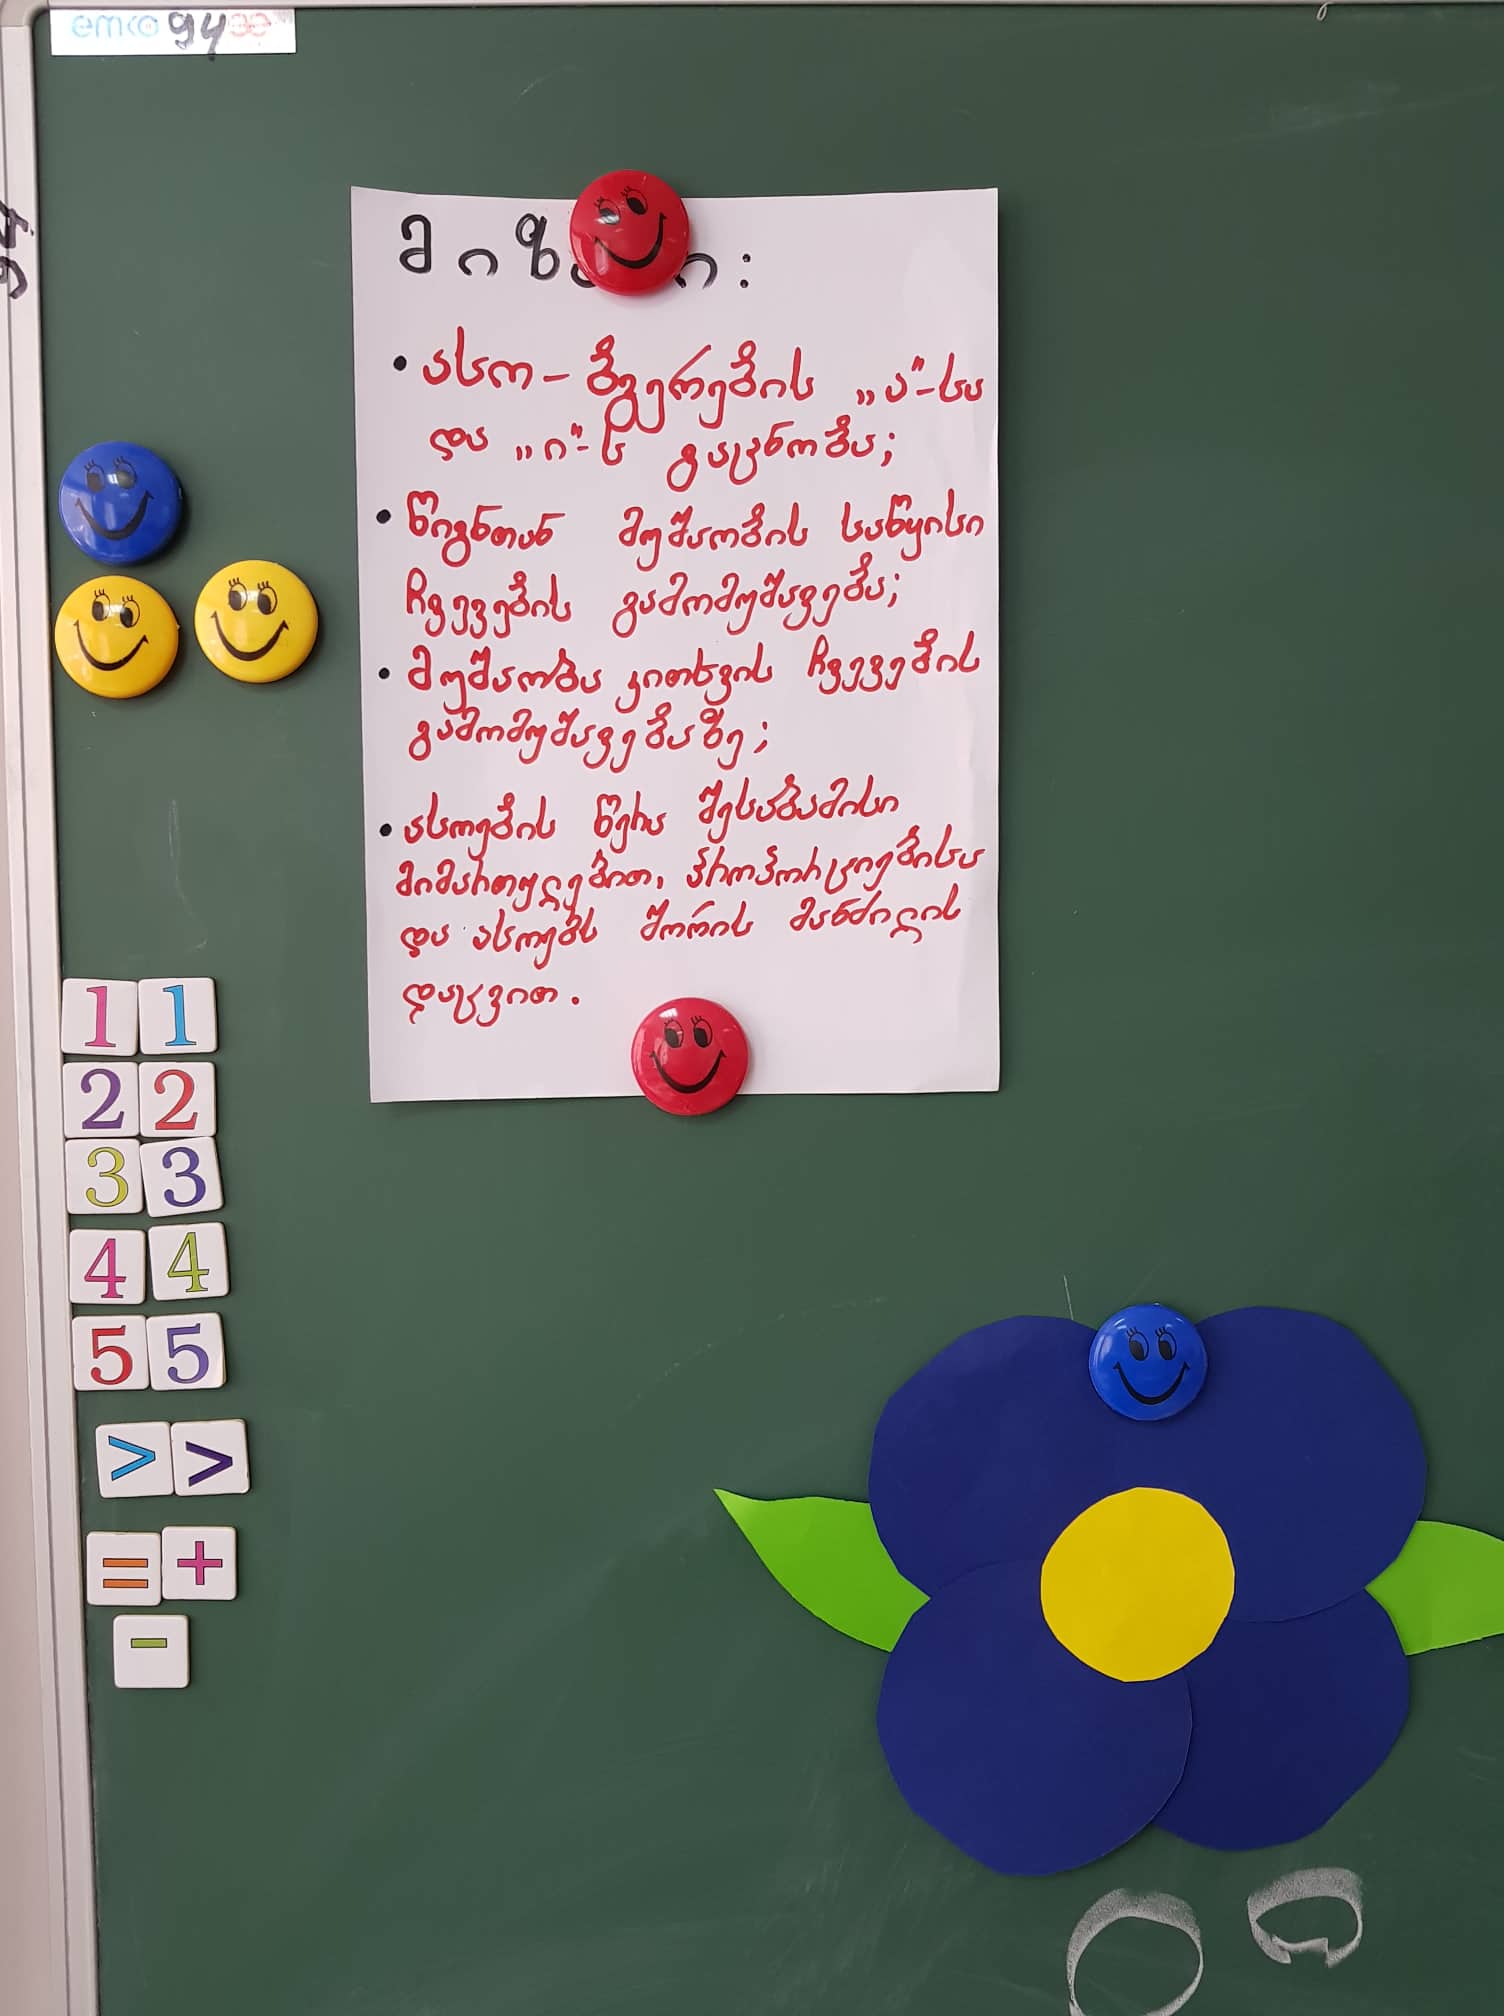 emko 94
94
მიზანი:
• ასო-ბგერების „ა"-სა
და „ი"-ს გაცნობა;
• წიგნთან მუშაობის საწყისი
ჩვევების გამომუშავება;
• მუშაობა კითხვის ჩვევების
გამომუშავებაზე;
• ასოების წერა შესაბამისი
მიმართულებით, პროპორციებისა
და ასოებს შორის მანძილის
დაცვით.
1 1
2 2
3 3
4 4
5 5
> >
= +
-